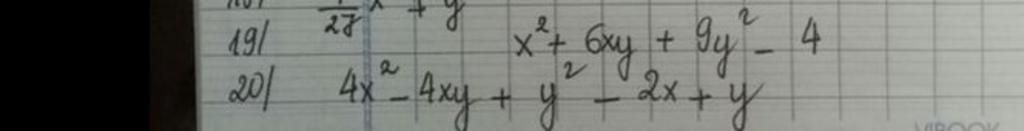 1/27 x + y
19/ x² + 6xy + 9y² - 4
20/ 4x² - 4xy + y² - 2x + y
VIBOOK